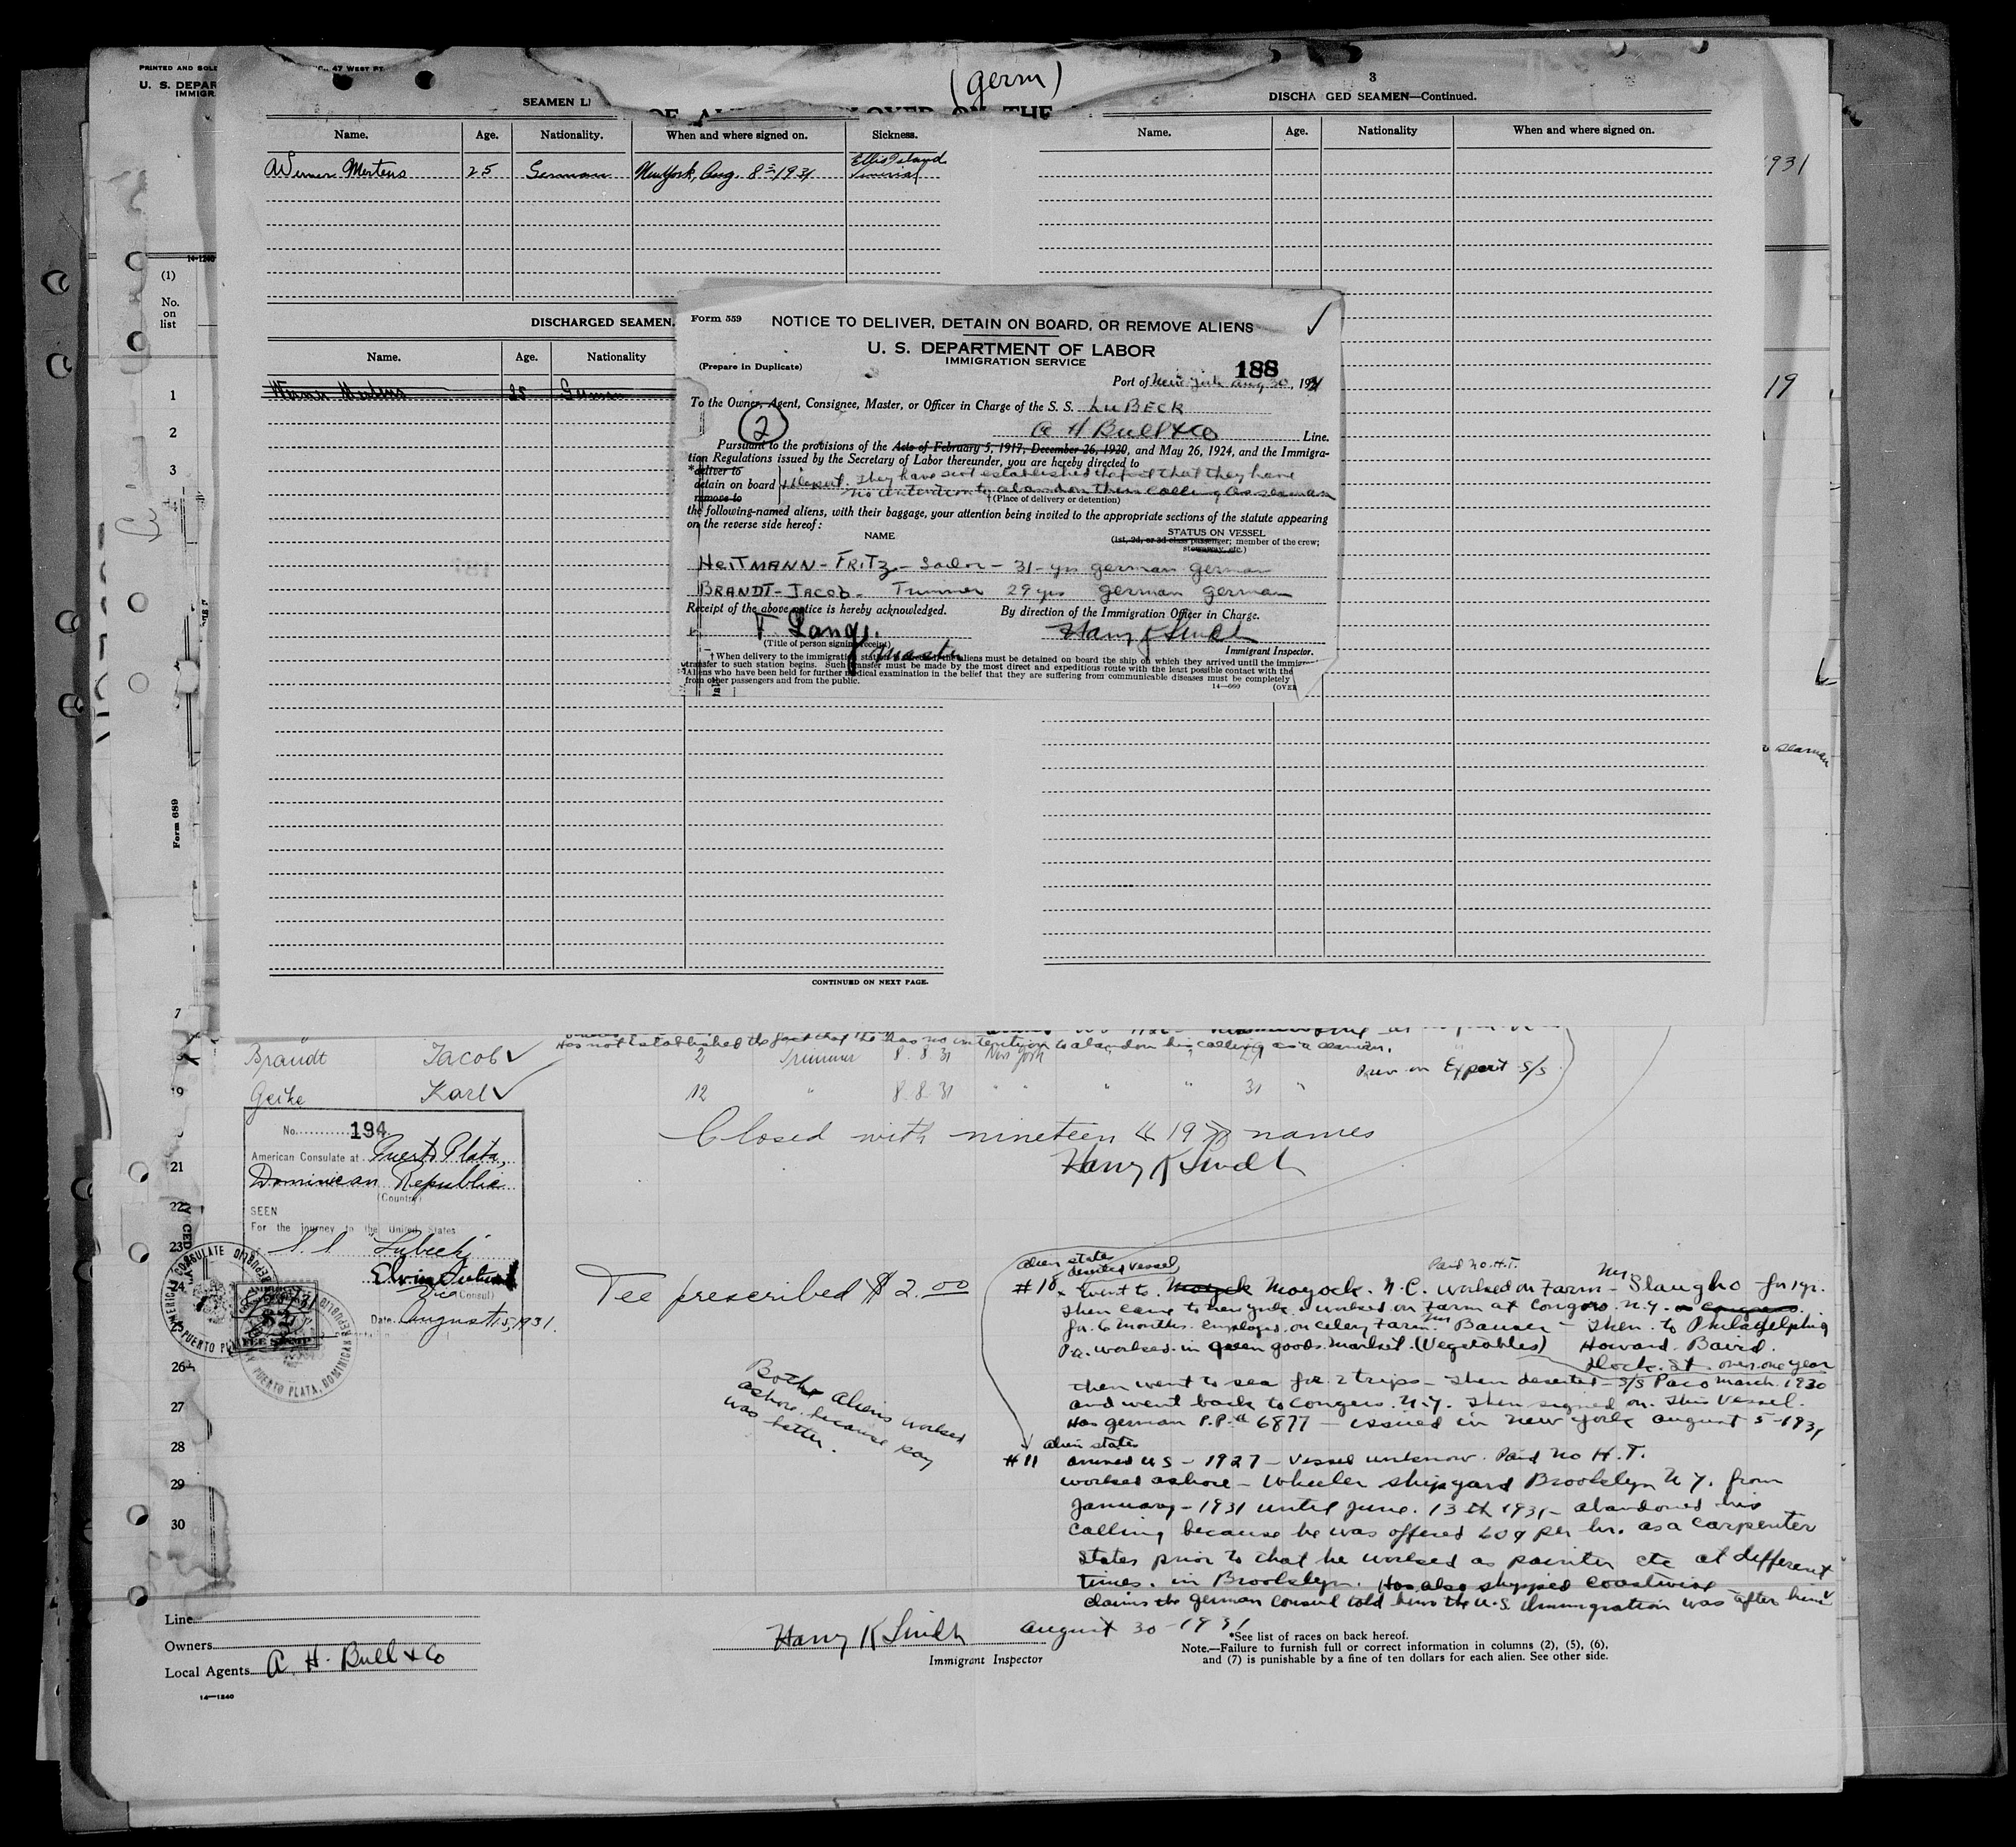 PRINTED AND SOLD
47 WEST
U. S. DEPAR
IMMIGR
(germ)
SEAMEN
3
DISCHA GED SEAMEN—Continued.
Name. Age. Nationality. When and where signed on. Sickness.
Name. Age. Nationality When and where signed on.
Werner Mertens 25 German New York, Aug. 8 1931 Ellis Island
1931
14-1240
(1)
No.
on
list
DISCHARGED SEAMEN.
Name. Age. Nationality
Werner Mertens 25 German
1
2
3
19
Form 559 NOTICE TO DELIVER, DETAIN ON BOARD, OR REMOVE ALIENS
U. S. DEPARTMENT OF LABOR
IMMIGRATION SERVICE
(Prepare in Duplicate)
188
Port of New York Aug 30, 1931
To the Owner, Agent, Consignee, Master, or Officer in Charge of the S. S. LUBECK
2 A H Bull & Co Line.
Pursuant to the provisions of the Acts of February 5, 1917, December 26, 1920, and May 26, 1924, and the Immigra-
tion Regulations issued by the Secretary of Labor thereunder, you are hereby directed to
*deliver to
detain on board
remove to
& deport. They have not established the fact that they have
no intention to abandon their calling as seaman
†(Place of delivery or detention)
the following-named aliens, with their baggage, your attention being invited to the appropriate sections of the statute appearing
on the reverse side hereof:
NAME
STATUS ON VESSEL
(1st, 2d, or 3d class passenger; member of the crew;
stowaway, etc.)
HEITMANN - FRITZ - Sailor - 31 - yrs german german
BRANDT - JACOB - Trimmer 29 yrs german german
Receipt of the above notice is hereby acknowledged.
By direction of the Immigration Officer in Charge.
F. Lange.
Harry K Smith
(Title of person signing receipt)
Master
Immigrant Inspector.
† When delivery to the immigration stat aliens must be detained on board the ship on which they arrived until the immigr
transfer to such station begins. Such transfer must be made by the most direct and expeditious route with the least possible contact with the
Aliens who have been held for further medical examination in the belief that they are suffering from communicable diseases must be completely
from other passengers and from the public.
14—660 (OVER
seaman
Form 689
CONTINUED ON NEXT PAGE.
7
Has not established the fact that he has no intention to abandon his calling as a seaman.
Brandt Jacob 2 Trimmer 8. 8 31 New York " " 29
on Export S/S
9
Geike Karl 12 " 8-8-31 " " " " 31 "
Closed with nineteen (19) names
Harry K Smith
No. 194
American Consulate at Puerto Plata,
Dominican Republic
(Country)
SEEN
For the journey to the United States
S. S. Lubeck
Vice (Consul)
Date August 15, 1931.
AMERICAN CONSULATE
PUERTO PLATA, DOMINICAN REPUBLIC
FEE STAMP
21
22
23
24
26
27
28
29
30
Fee prescribed $ 2.00
Both aliens worked
ashore because pay
was better.
alien states
deserted vessel
Paid no H.T.
#18 Went to Moyock Moyock. N.C. worked on Farm - Mr Slaugho for 1 yr.
Then came to New York & worked on Farm at Congers N.Y. Congers
for 6 months. employed on celery Farm Mr Bauser - Then to Philadelphia
Pa. worked in green goods market. (Vegetables) Howard Baird
Dock St over one year
Then went to sea for 2 trips - Then deserted - S/S Paco March 1930
and went back to Congers N.Y. Then signed on This Vessel.
Has german P.P.# 6877 - issued in New York August 5 - 1931
alien states
#11 arrived U S - 1927 - Vessel unknow. Paid no H.T.
worked ashore - Wheeler shipyard Brooklyn N Y. from
January - 1931 until June. 13th 1931 - abandoned his
calling because he was offered 60¢ per hr. as a carpenter
states prior to that he worked as painter etc at different
times. in Brooklyn. Has also shipped coastwise
claims the german consul told him the U.S. Immigration was after him
Line
Owners
Local Agents A. H. Bull & Co
14—1240
Harry K Smith August 30 - 1931
Immigrant Inspector
*See list of races on back hereof.
Note.—Failure to furnish full or correct information in columns (2), (5), (6),
and (7) is punishable by a fine of ten dollars for each alien. See other side.